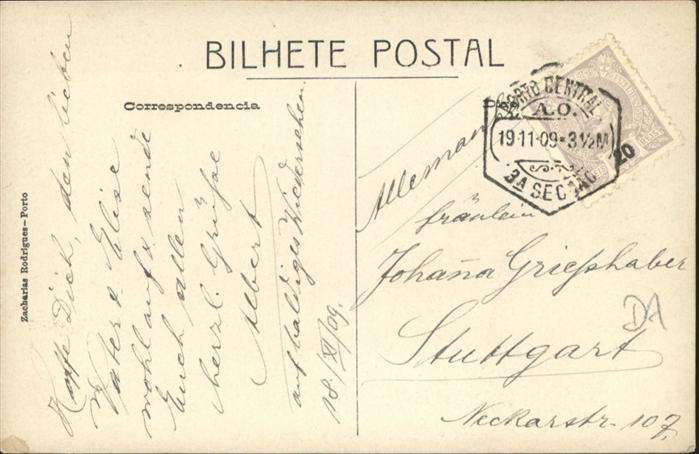 BILHETE POSTAL
Correspondencia
Zacharias Rodrigues - Porto
Hoffe Dich, den lieben
Vater & Elise
wohlauf & sende
Euch allen
herzl. Grüsse
Albert
auf baldiges Wiedersehen.
18/XI/09.
PORTO CENTRAL
A.O.
19·11·09·3½M
3A SECÇÃO
20
Allemanha
Fräulein
Johana Grieshaber
Stuttgart
Neckarstr. 107.
DA